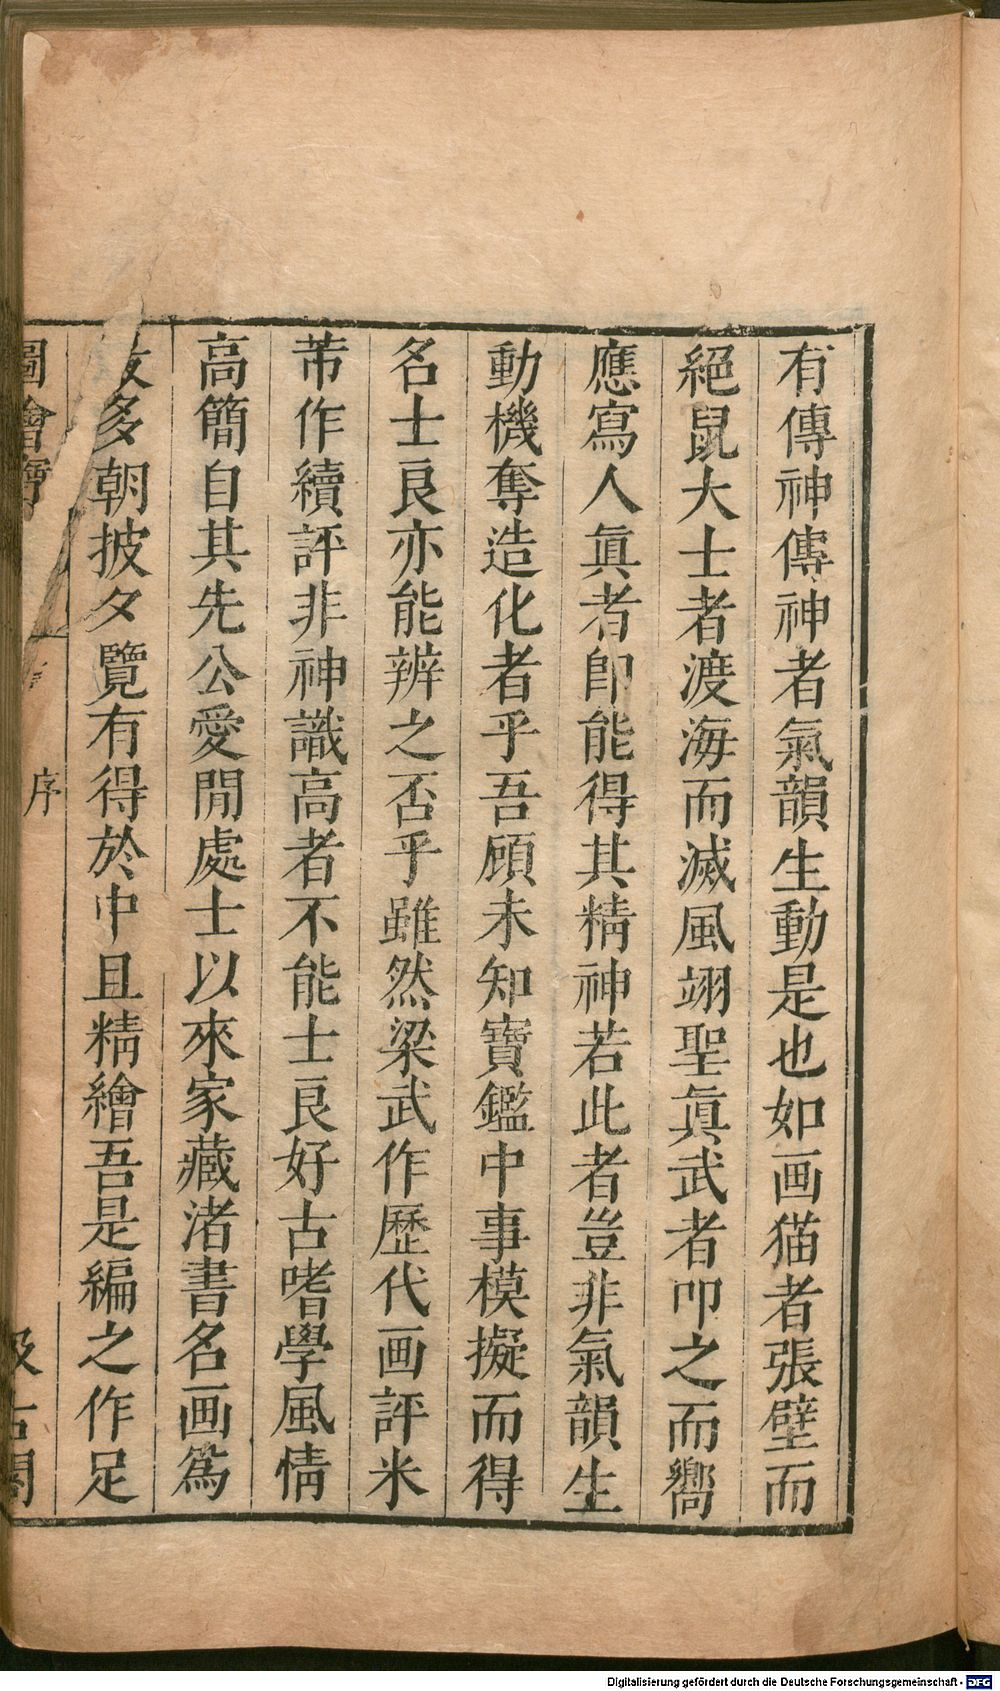 有傳神傳神者氣韻生動是也如画猫者張壁而
絕鼠大士者渡海而滅風翊聖眞武者叩之而嚮
應寫人眞者卽能得其精神若此者豈非氣韻生
動機奪造化者乎吾顧未知寶鑑中事模擬而得
名士良亦能辨之否乎雖然梁武作歷代画評米
芾作續評非神識高者不能士良好古嗜學風情
高簡自其先公愛閒處士以來家藏渚書名画爲
多朝披夕覽有得於中且精繪吾是編之作足
圖繪寶 序 汲古閣
Digitalisierung gefördert durch die Deutsche Forschungsgemeinschaft - DFG